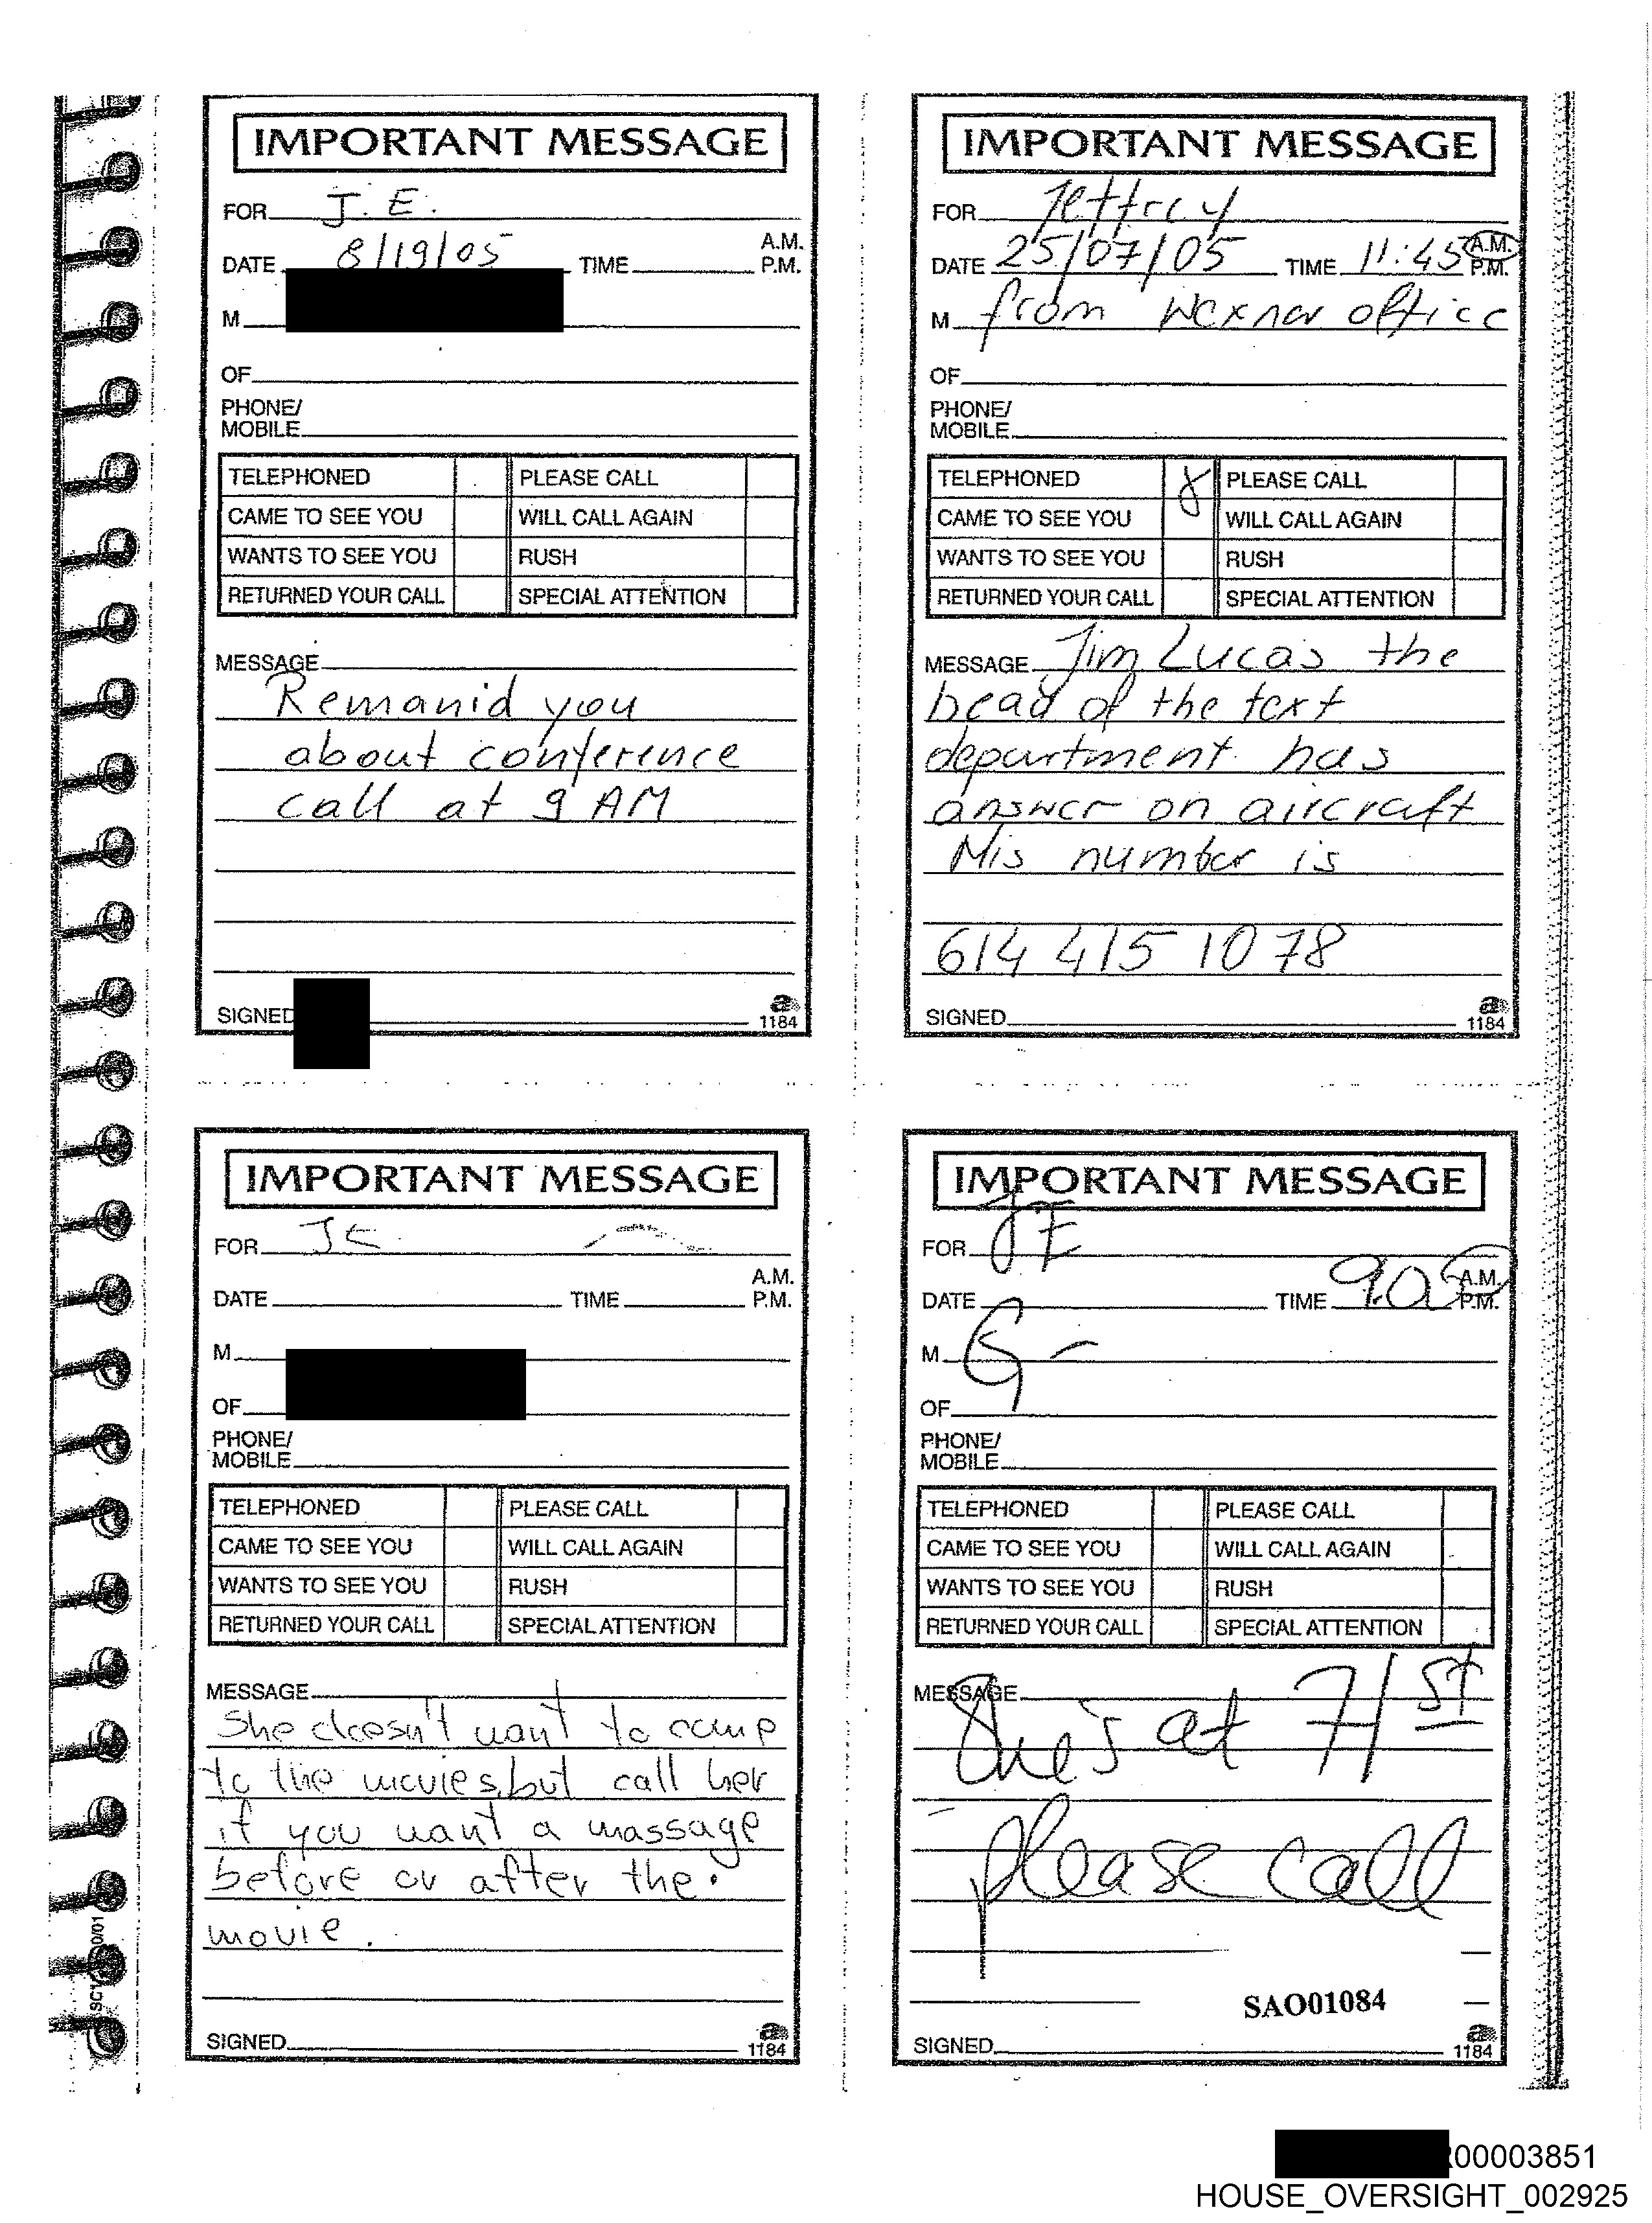 IMPORTANT MESSAGE
FOR J. E.
DATE 8/19/05 TIME A.M. P.M.
M
OF
PHONE/
MOBILE
TELEPHONED PLEASE CALL
CAME TO SEE YOU WILL CALL AGAIN
WANTS TO SEE YOU RUSH
RETURNED YOUR CALL SPECIAL ATTENTION
MESSAGE
Remanid you
about conference
call at 9 AM
SIGNED
1184
IMPORTANT MESSAGE
FOR Jeffrey
DATE 25/07/05 TIME 11:45 A.M. P.M.
M from Wexner office
OF
PHONE/
MOBILE
TELEPHONED PLEASE CALL
CAME TO SEE YOU WILL CALL AGAIN
WANTS TO SEE YOU RUSH
RETURNED YOUR CALL SPECIAL ATTENTION
MESSAGE Jim Lucas the
head of the
department has
answer on aircraft
His number is
614 415 1078
SIGNED
1184
IMPORTANT MESSAGE
FOR JE
DATE TIME A.M. P.M.
M
OF
PHONE/
MOBILE
TELEPHONED PLEASE CALL
CAME TO SEE YOU WILL CALL AGAIN
WANTS TO SEE YOU RUSH
RETURNED YOUR CALL SPECIAL ATTENTION
MESSAGE
She doesn't want to come
to the movies, but call her
if you want a massage
before or after the
movie.
SIGNED
1184
IMPORTANT MESSAGE
FOR JE
DATE TIME 9.05 A.M. P.M.
M G -
OF
PHONE/
MOBILE
TELEPHONED PLEASE CALL
CAME TO SEE YOU WILL CALL AGAIN
WANTS TO SEE YOU RUSH
RETURNED YOUR CALL SPECIAL ATTENTION
MESSAGE
She's at 71st
please call
SAO01084
SIGNED
1184
00003851
HOUSE_OVERSIGHT_002925